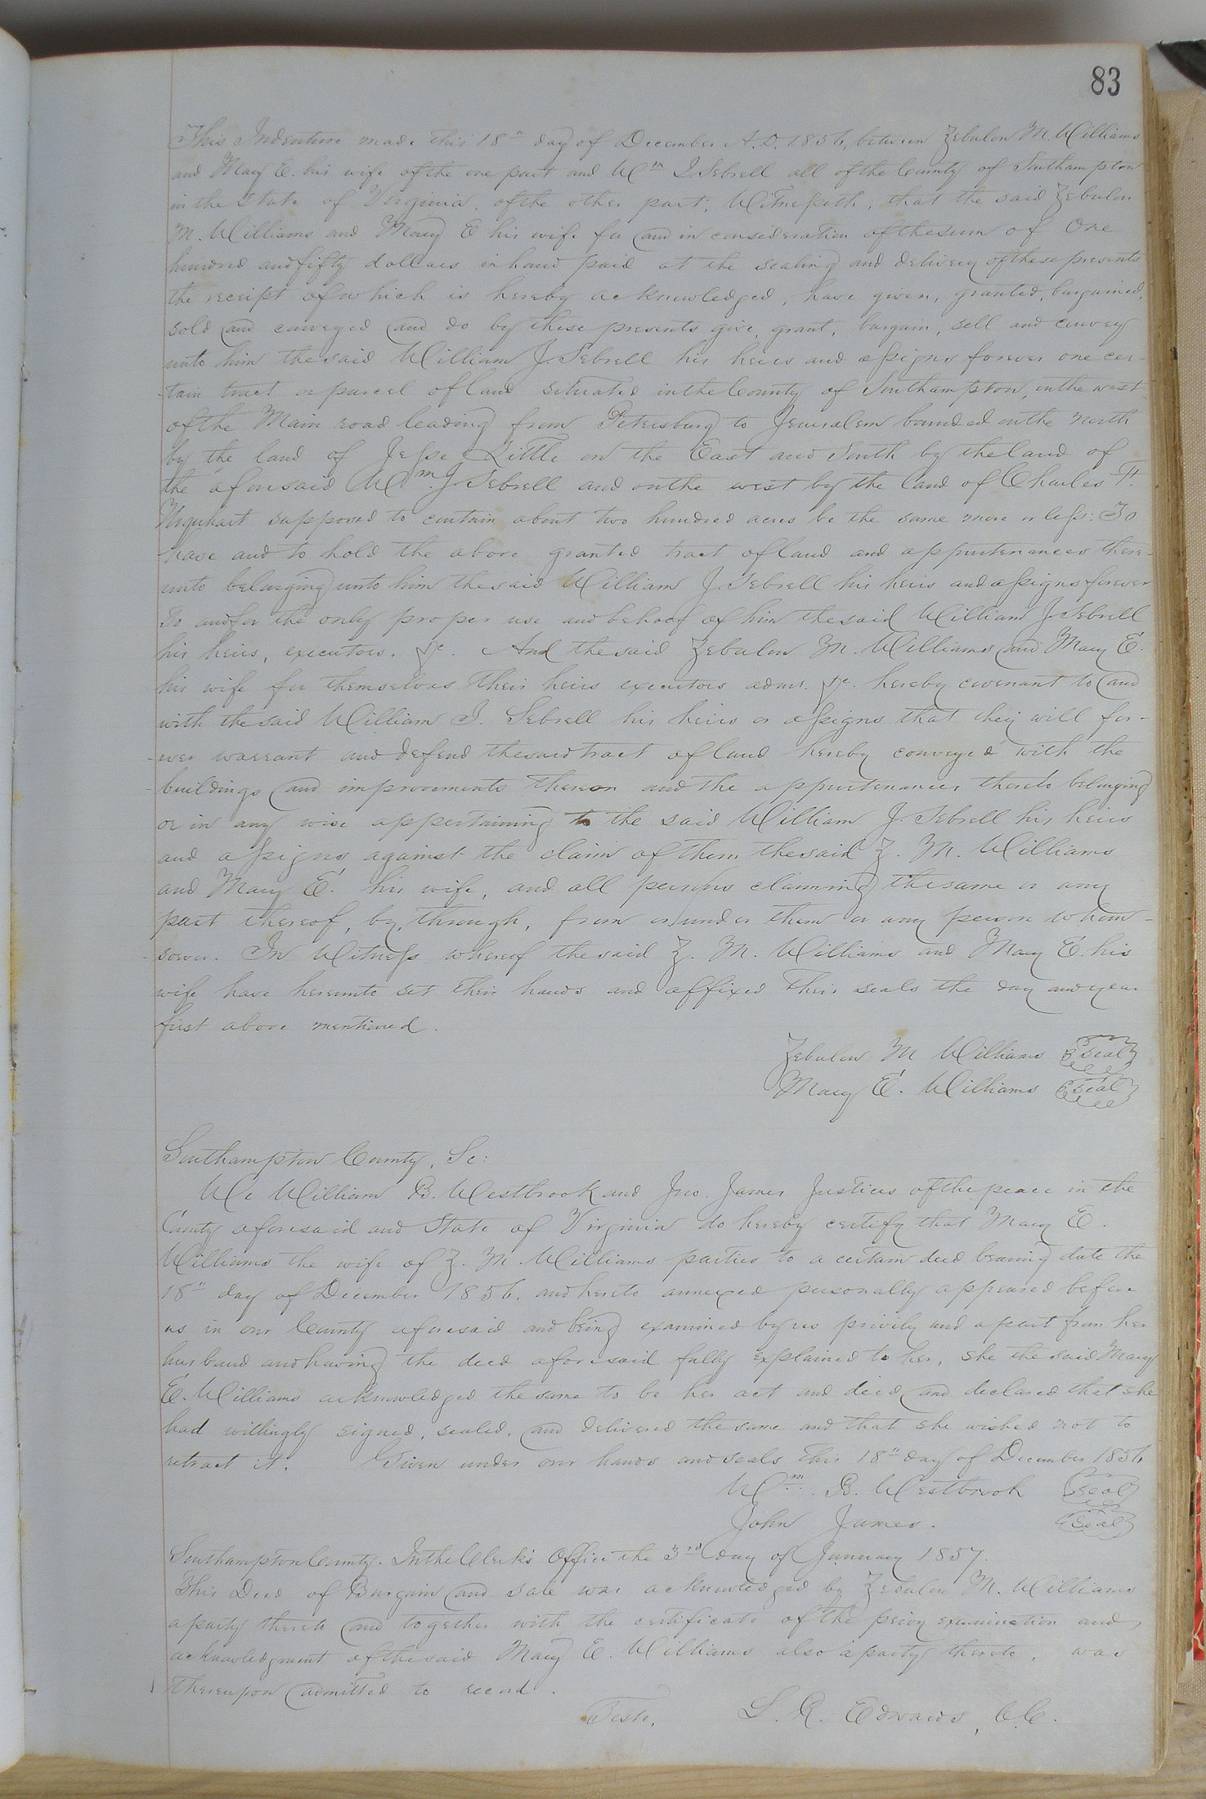 83
This Indenture made this 18th day of December A.D. 1856, between Zebulon M. Williams
and Mary E. his wife of the one part and Wm J Sebrell all of the County of Southampton
in the State of Virginia, of the other part, Witnesseth, that the said Zebulon
M. Williams and Mary E his wife for and in consideration of the sum of One
hundred and fifty dollars in hand paid at the sealing and delivery of these presents
the receipt of which is hereby acknowledged, have given, granted, bargained,
sold and conveyed and do by these presents give, grant, bargain, sell and convey
unto him the said William J. Sebrell his heirs and assigns forever one cer-
-tain tract or parcel of land situated in the County of Southampton, on the west
of the Main road leading from Petersburg to Jerusalem bounded on the north
by the land of Jesse Little on the East and South by the land of
the aforesaid Wm J. Sebrell and on the west by the land of Charles F.
Urquhart supposed to contain about two hundred acres be the same more or less: To
have and to hold the above granted tract of land and appurtenances there-
unto belonging unto him the said William J. Sebrell his heirs and assigns forever
To and for the only proper use and behoof of him the said William J. Sebrell
his heirs, executors, &c. And the said Zebulon M. Williams and Mary E.
his wife for themselves their heirs executors admr. &c. hereby covenant to and
with the said William J. Sebrell his heirs or assigns that they will for-
-ever warrant and defend the said tract of land hereby conveyed with the
buildings and improvements thereon and the appurtenances thereto belonging
or in any wise appertaining to the said William J. Sebrell his heirs
and assigns against the claim of them the said Z. M. Williams
and Mary E. his wife, and all persons claiming the same or any
part thereof, by, through, from or under them or any person whom-
-soever. In Witness whereof the said Z. M. Williams and Mary E. his
wife have hereunto set their hands and affixed their seals the day and year
first above mentioned.
Zebulon M Williams seal
Mary E. Williams seal
Southampton County, Sc:
We William B. Westbrook and Jno. James Justices of the peace in the
County aforesaid and State of Virginia do hereby certify that Mary E.
Williams the wife of Z. M. Williams parties to a certain deed bearing date the
18th day of December 1856, and hereto annexed personally appeared before
us in our County aforesaid and being examined by us privily and apart from her
husband and having the deed aforesaid fully explained to her, she the said Mary
E. Williams acknowledged the same to be her act and deed and declared that she
had willingly signed, sealed, and delivered the same and that she wished not to
retract it. Given under our hands and seals this 18th day of December 1856
Wm. B. Westbrook seal
John James. seal
Southampton County. In the Clerk's Office the 3rd day of January 1857.
This Deed of Bargain and Sale was acknowledged by Zebulon M. Williams
a party thereto and together with the certificate of the privy examination and
acknowledgment of the said Mary E. Williams also a party thereto, was
thereupon admitted to record.
Teste, L. R. Edwards, C.C.